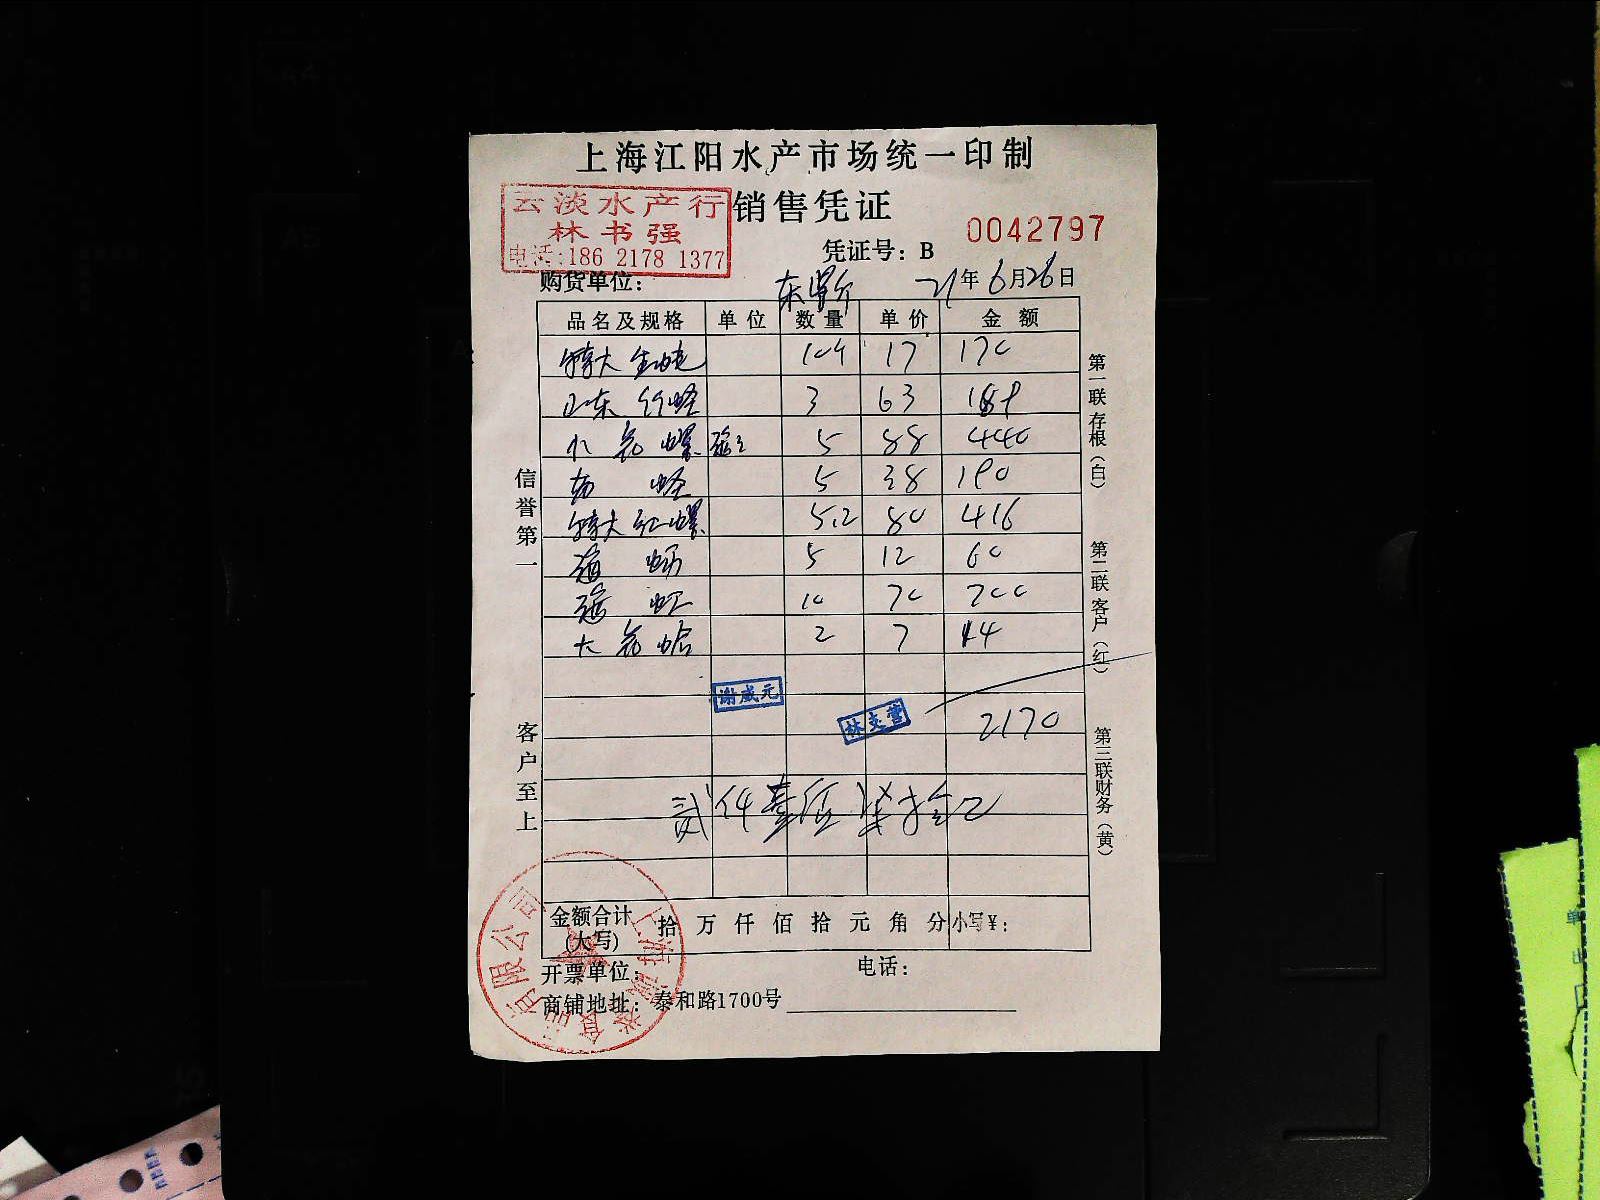 上海江阳水产市场统一印制
云淡水产行
林书强
电话:186 2178 1377
销售凭证
凭证号：B 0042797
购货单位： 21年6月26日
品名及规格 单位 数量 单价 金额
特大生蚝 17 170
山东竹蛏 3 63 189
花螺 5 88 440
蛏 5 38 190
特大红螺 5.2 80 416
5 12 60
10 70 700
大花蛤 2 7 14
谢威元
林支营
2170
贰仟壹佰柒拾元
金额合计(大写) 拾万仟佰拾元角分 小写¥：
开票单位： 电话：
商铺地址：泰和路1700号
信誉第一
客户至上
第一联存根（白）
第二联客户（红）
第三联财务（黄）
有限公司